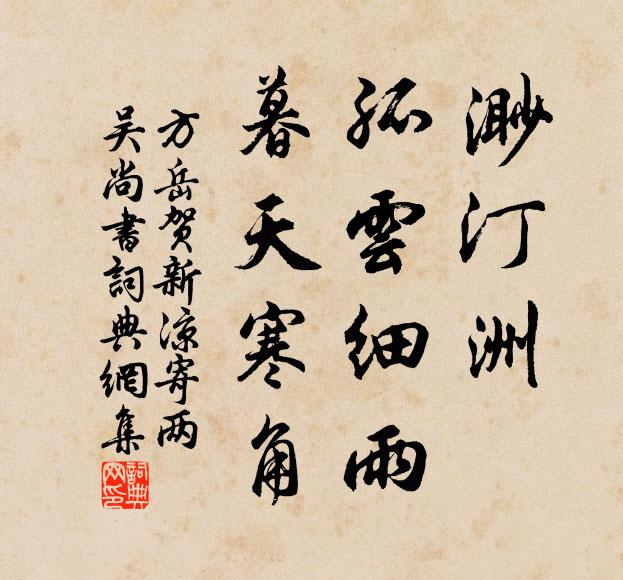 渺汀洲
孤雲细雨
暮天寒角
方岳贺新凉寄两
吴尚書詞典網集
詞典网印